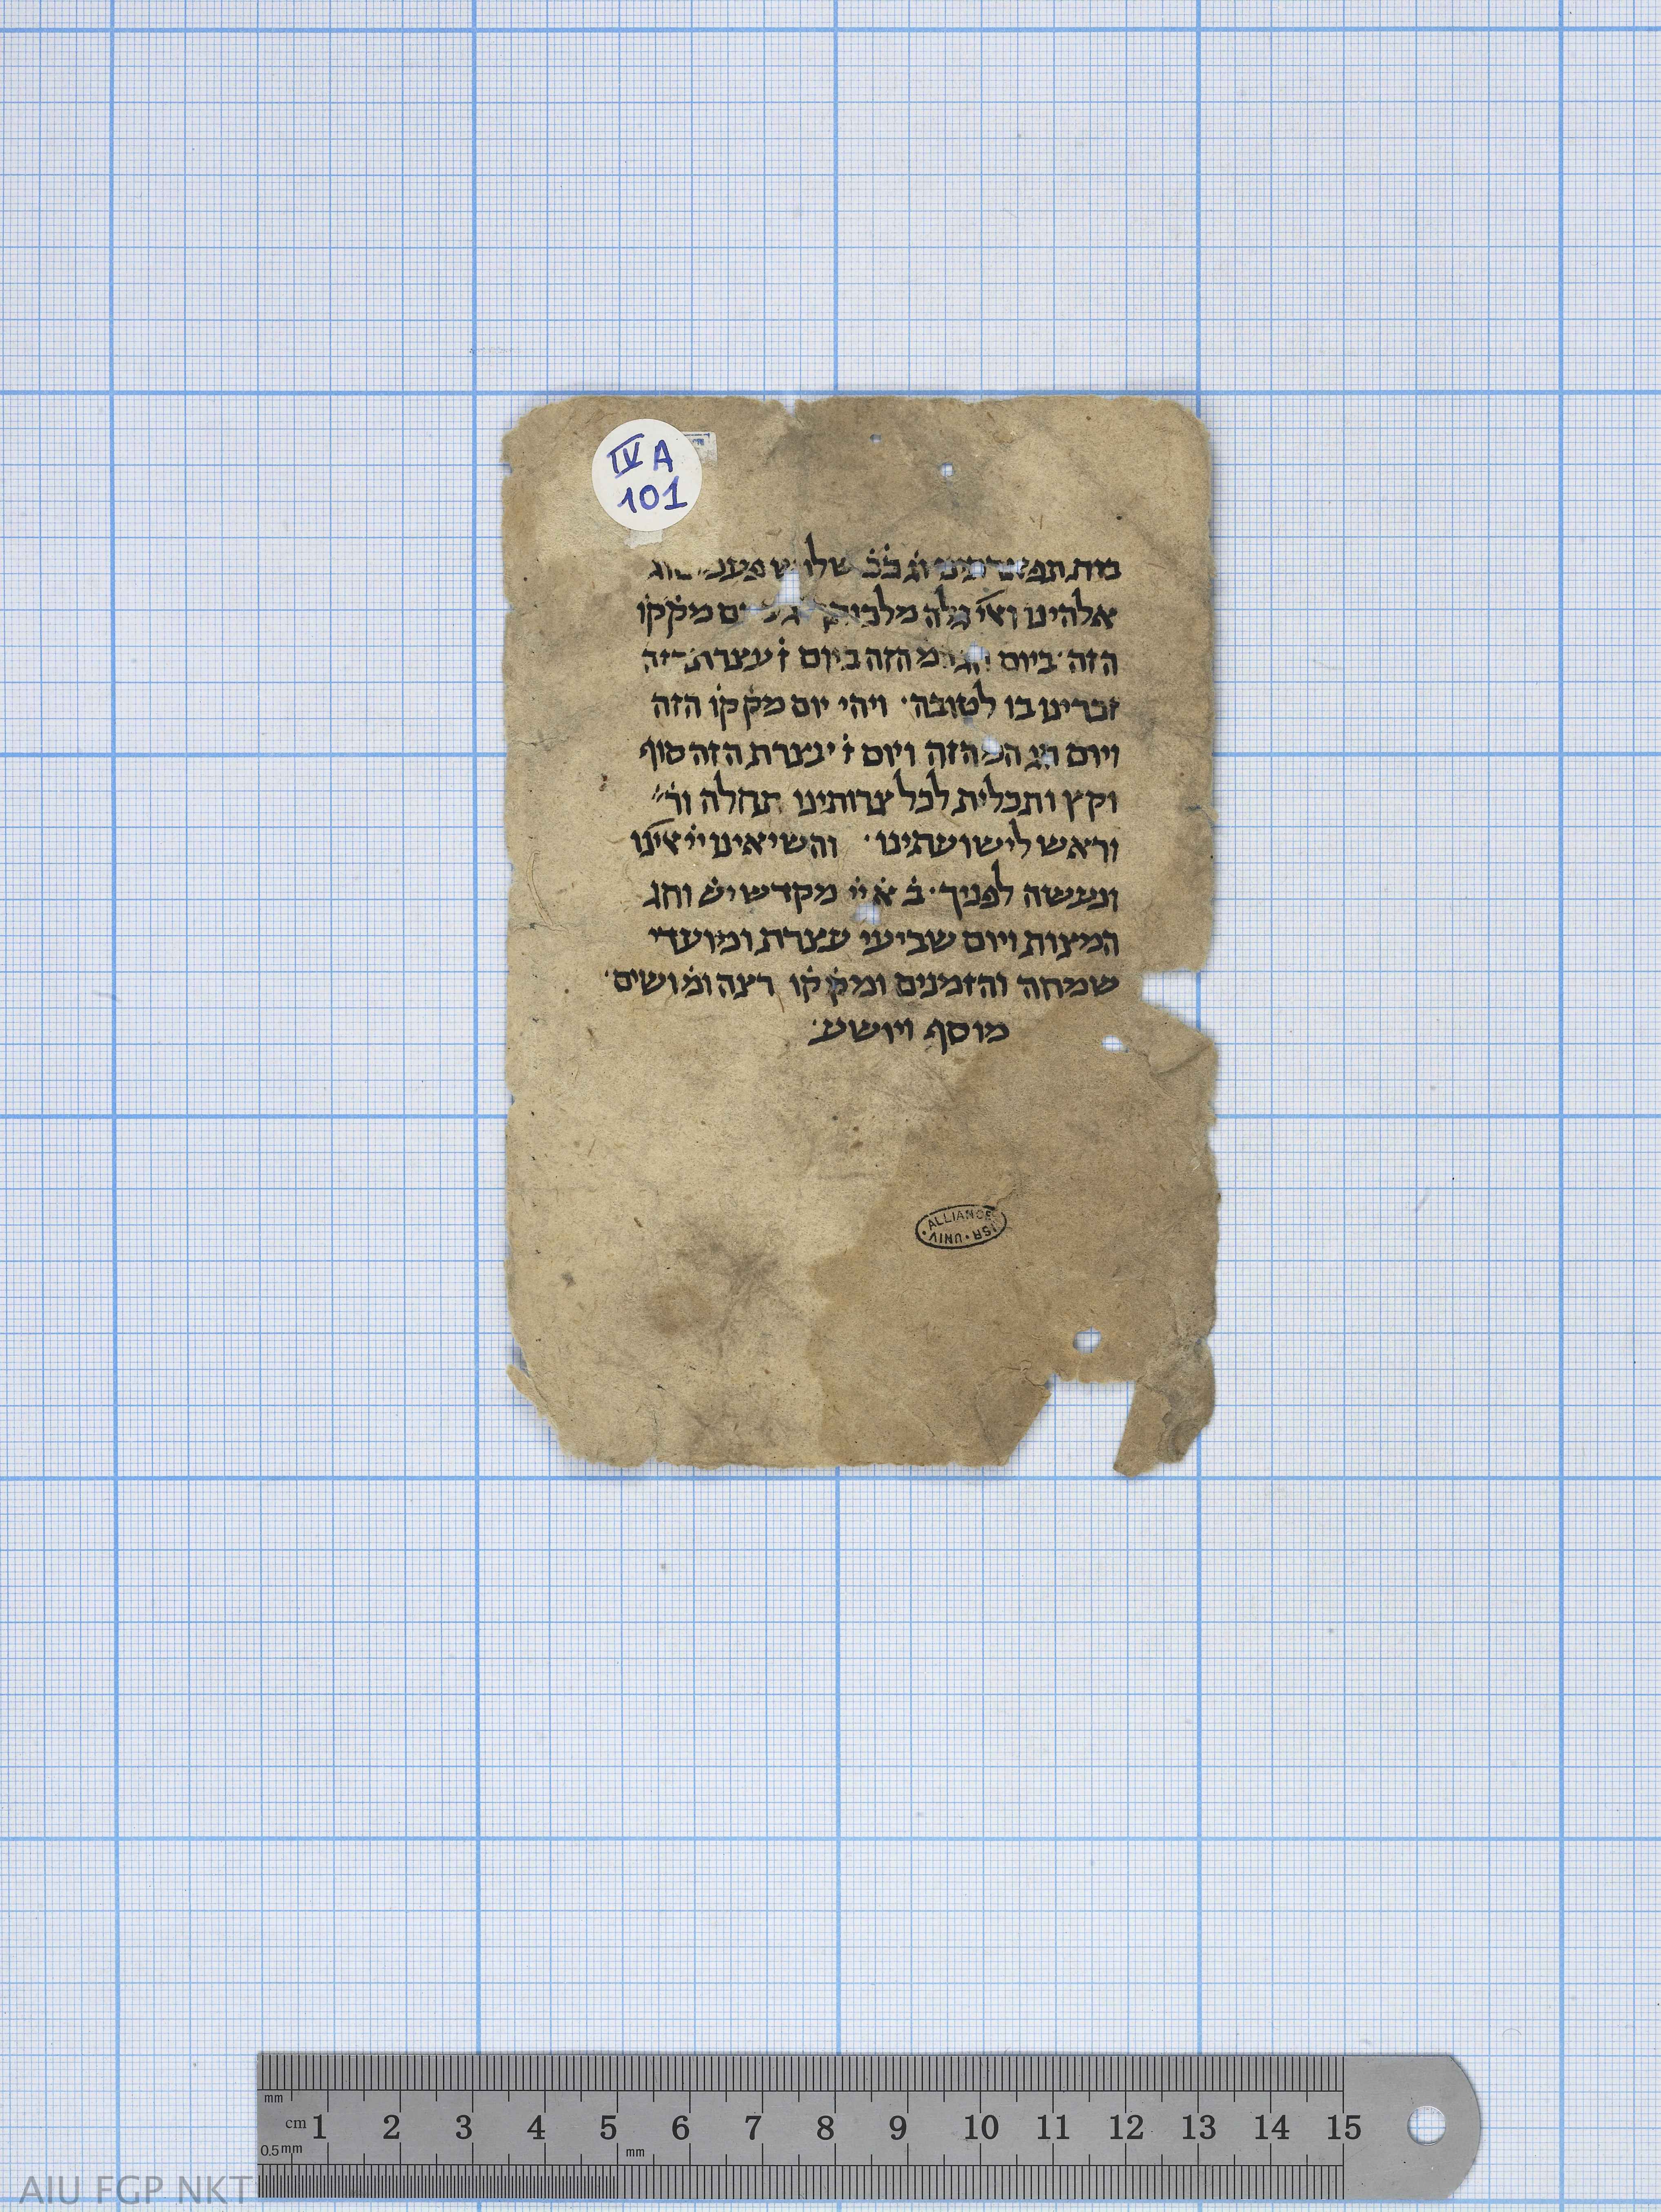 IV A
101
אלהינו גלה מלכותך מק̇ק̇ו
הזה ביום הזה ביום ז̇ עצרת הזה
זכרינו בו לטובה· ויהי יום מק̇ק̇ו הזה
ויום חג המ̇ הזה ויום ז̇ עצרת הזה סוף
וקץ ותכלית לכל צרותינו תחלה ור׳׳
וראש לישועתינו· והשיאינו
ונעשה לפניך· ב̇ א̇ י̇י̇ מקדש יש̇ וחג
המצות ויום שביעי עצרת ומועדי
שמחה והזמנים ומק̇ק̇ו רצה ומ̇ ושים·
מוסף ויושע·
ALLIANCE ISR · UNIV ·
mm
cm 1 2 3 4 5 6 7 8 9 10 11 12 13 14 15
0.5 mm mm
AIU FGP NKT